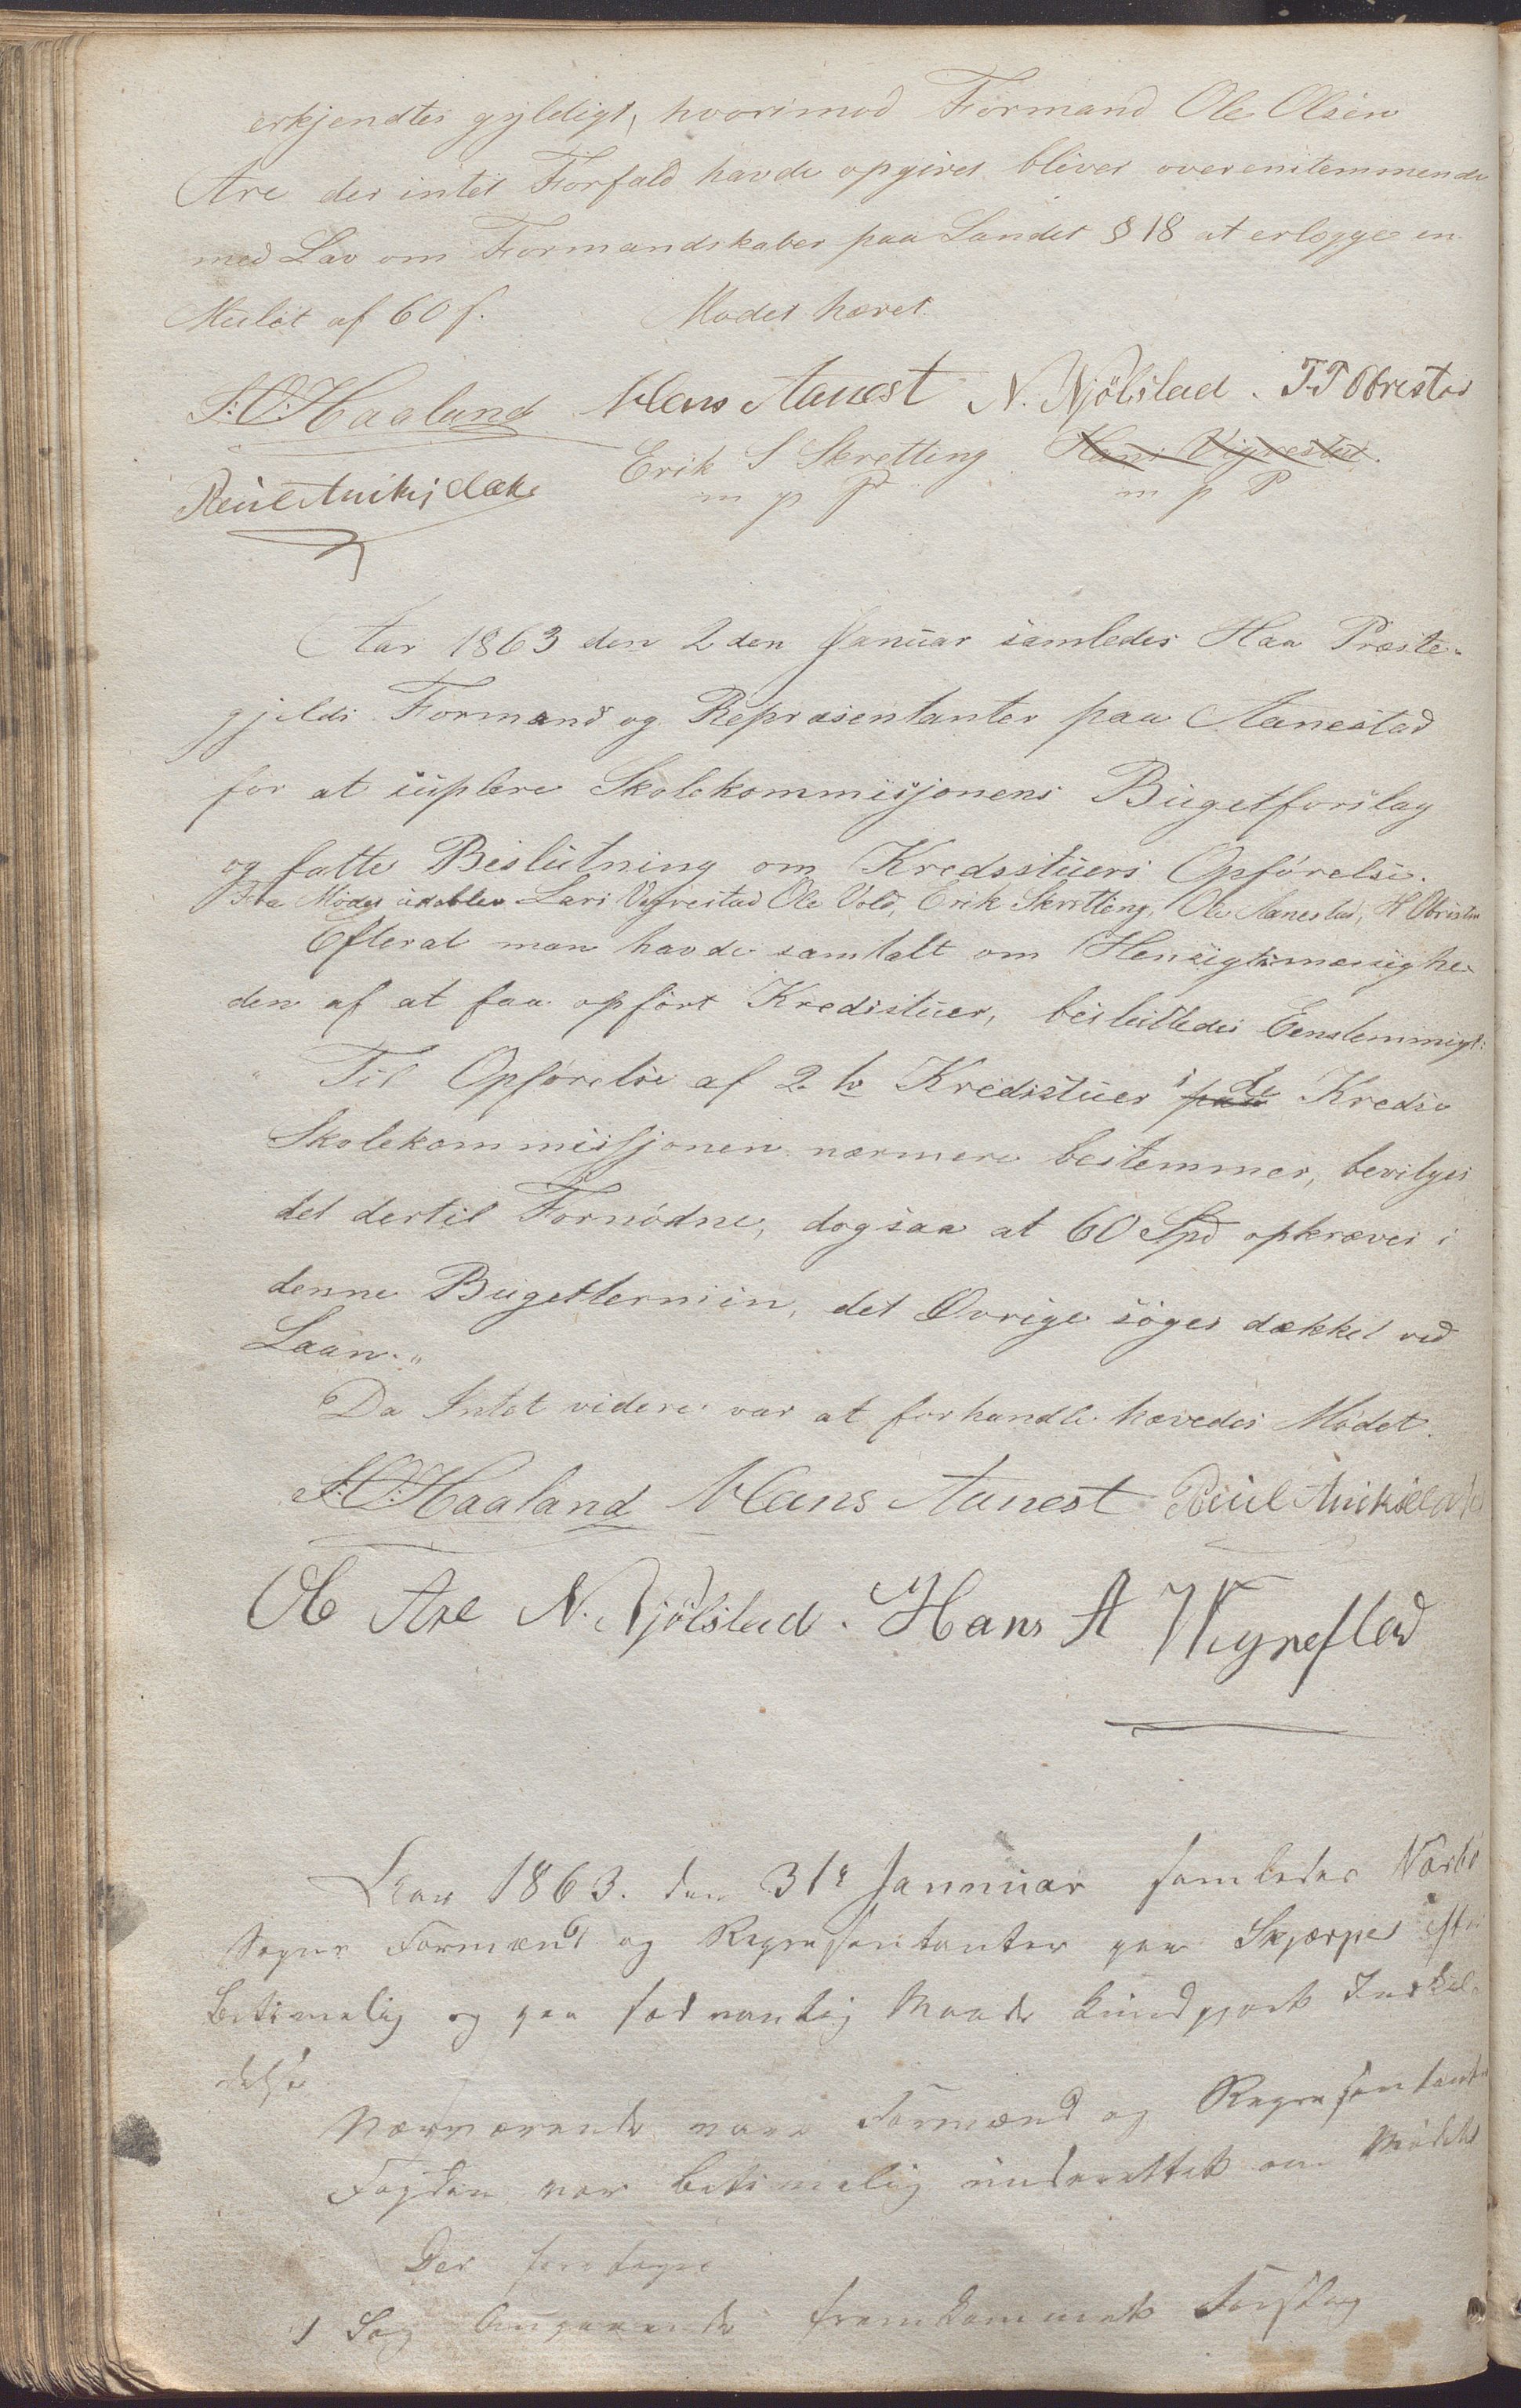 erkjendtes gyldigt, hvorimod Formand Ole Olsen
Are der intet Forfald havde opgivet bliver overenstemmende
med Lov om Formandskaber paa Landet § 18 at erlægge en
Mulct af 60 f. Modet hævet.
S: O: Haaland Hans Aanest N. Njölstad. T. T Obrestad
Erik S Skretting Hans Vigrestad.
m p P m p P
Aar 1863 den 2den Januar samledes Haa Præste-
gjelds Formænd og Repræsentanter paa Aanestad
for at suplere Skolekommisjonens Bugetforslag
og fatte Beslutning om Kredsstuers Opførelse.
Fra Mødet udeblev Lars Vigrestad Ole Vold, Erik Skretting, Ole Aanestad, H Obrestad
Efterat man havde samtalt om Hensigtsmæsighe-
den af at faa opført Kredsstuer, besluttedes Eenstemmigt:
" Til Opførelse af 2 to Kredsstuer i paa de Kredse
Skolekommissjonen nærmere bestemmer, bevilges
det dertil Fornødne, dog saa at 60 Spd opkræves i
denne Bugettermin, det Øvrige søges dækket ved
Laan."
Da Intet videre var at forhandle hævedes Mødet.
S: O: Haaland Hans Aanest
Ole Are N. Njölstad. Hans A Wigrestad
Aar 1863. den 31te Januar samledes Nærbø
Sogns Formænd og Repræsentanter paa Skjærpe efter
betimelig og paa sædvanlig Maade kundgjort Indkal-
delse
Nærværende vare Formænd og Repræsentanter
Fogden var betimelig underrettet om Mødet
Der foretoges
1 Sag Angaaende fremkommet Forslag